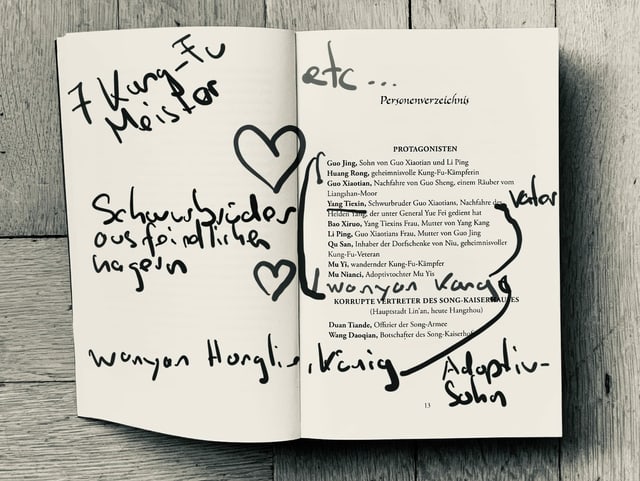 7 Kung-Fu
Meister
Schwurbrüder
aus feindlichen
Lagern
Wanyan Honglie, König
etc...
Personenverzeichnis
PROTAGONISTEN
Guo Jing, Sohn von Guo Xiaotian und Li Ping
Huang Rong, geheimnisvolle Kung-Fu-Kämpferin
Guo Xiaotian, Nachfahre von Guo Sheng, einem Räuber vom
Liangshan-Moor
Yang Tiexin, Schwurbruder Guo Xiaotians, Nachfahre des
Helden Yang, der unter General Yue Fei gedient hat
Vater
Bao Xiruo, Yang Tiexins Frau, Mutter von Yang Kang
Li Ping, Guo Xiaotians Frau, Mutter von Guo Jing
Qu San, Inhaber der Dorfschenke von Niu, geheimnisvoller
Kung-Fu-Veteran
Mu Yi, wandernder Kung-Fu-Kämpfer
Mu Nianci, Adoptivtochter Mu Yis
Wanyan Kang
KORRUPTE VERTRETER DES SONG-KAISERHAUSES
(Hauptstadt Lin'an, heute Hangzhou)
Duan Tiande, Offizier der Song-Armee
Wang Daoqian, Botschafter des Song-Kaiserhofs
Adoptiv-
Sohn
13